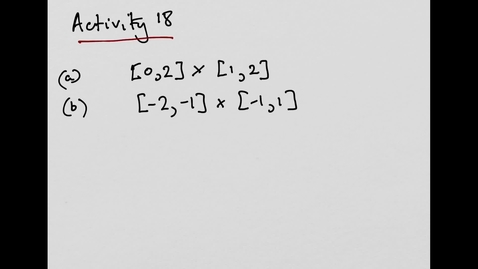 Activity 18
(a) [0,2] × [1,2]
(b) [-2,-1] × [-1,1]